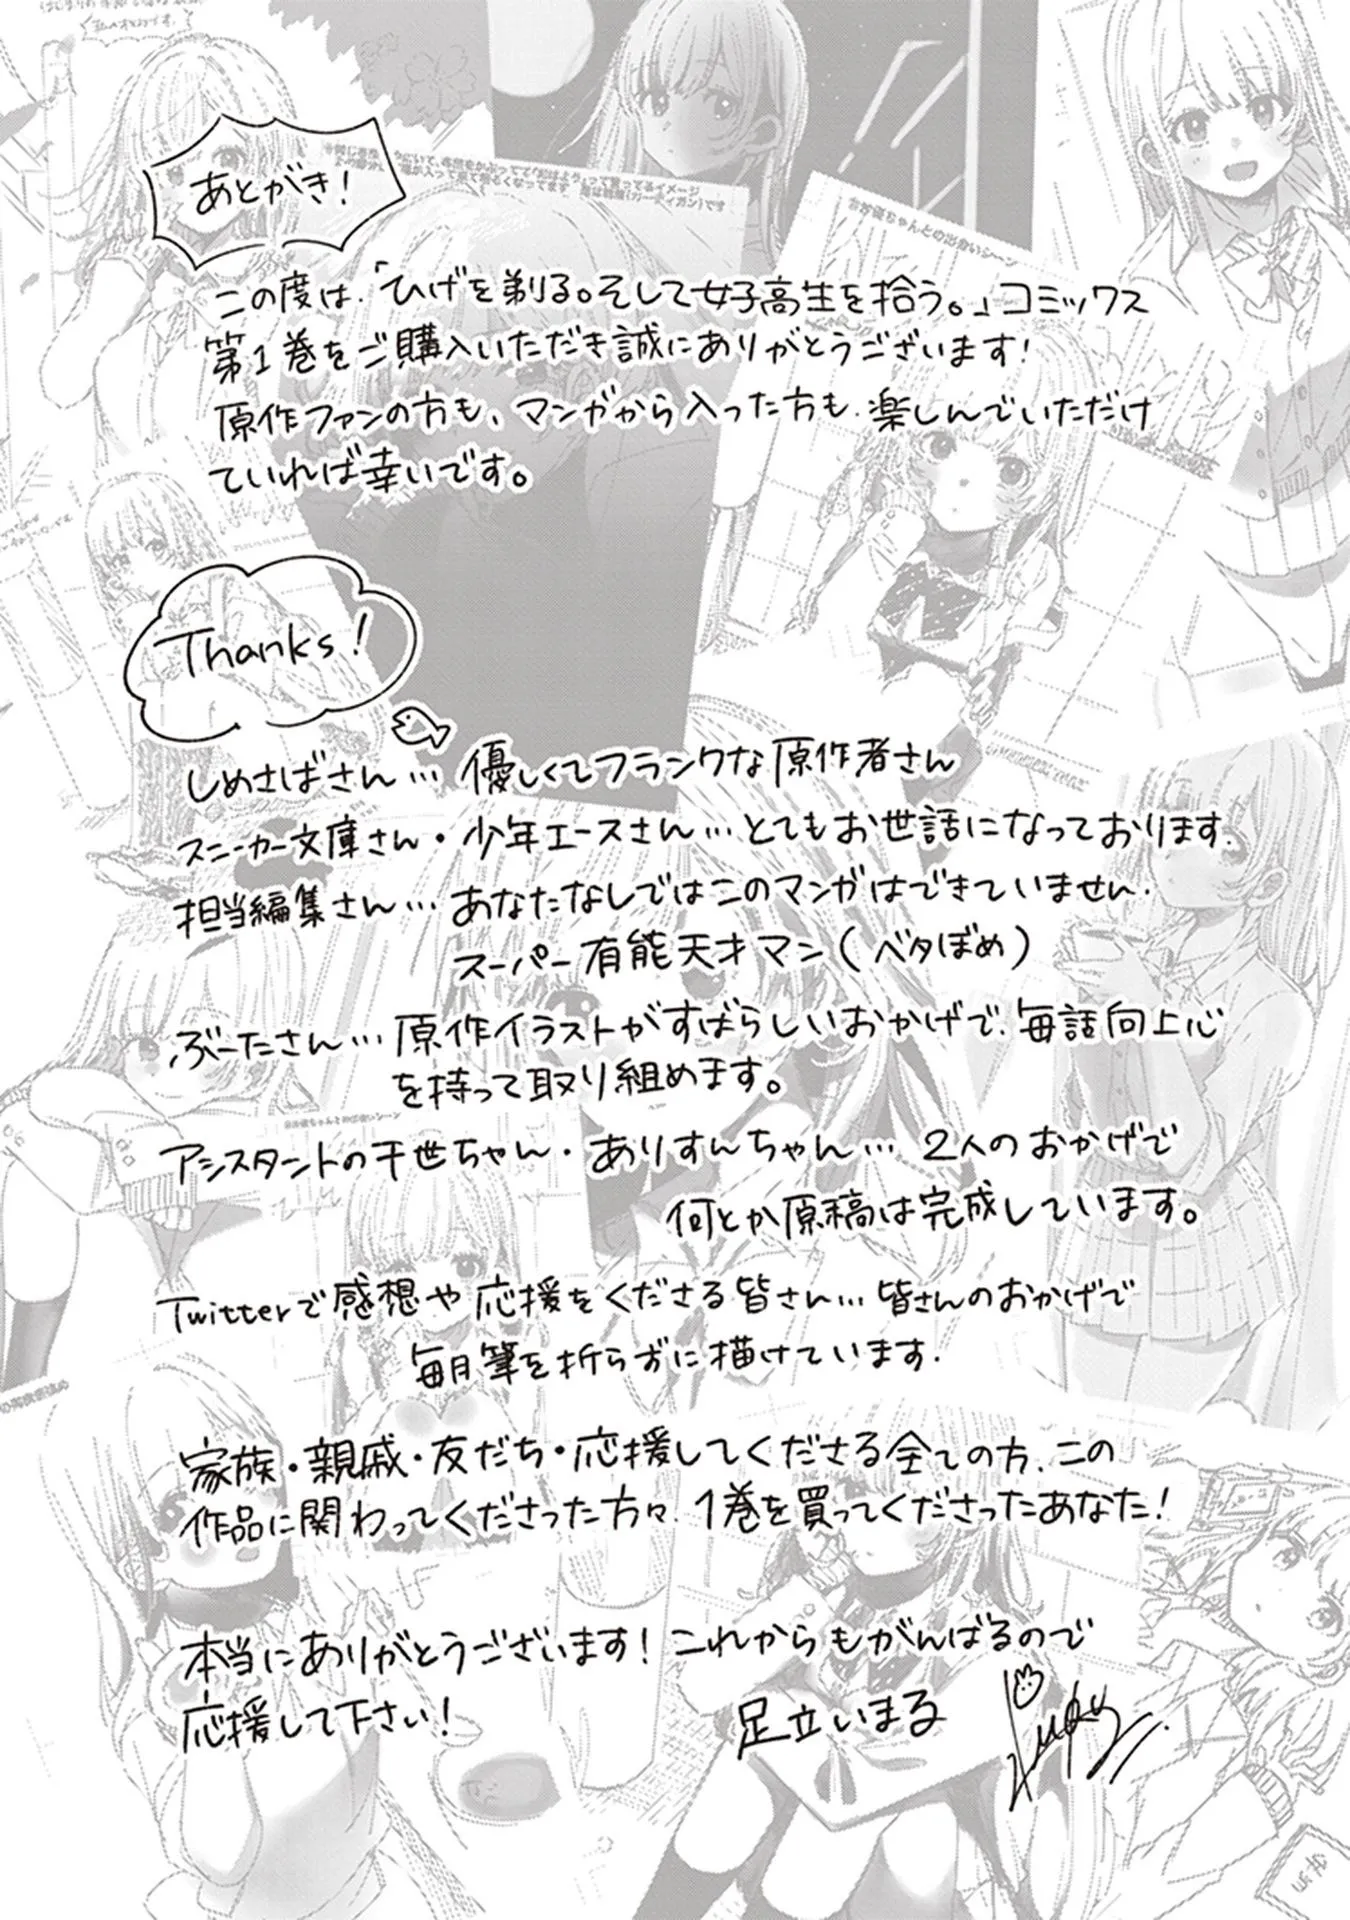 あとがき!
この度は、「ひげを剃る。そして女子高生を拾う。」コミックス
第1巻をご購入いただき誠にありがとうございます!
原作ファンの方も、マンガから入った方も、楽しんでいただけ
ていれば幸いです。
Thanks!
しめさばさん…優しくてフランクな原作者さん
スニーカー文庫さん・少年エースさん…とてもお世話になっております。
担当編集さん…あなたなしではこのマンガはできていません。
スーパー有能天才マン(ベタぼめ)
ぶーたさん…原作イラストがすばらしいおかげで、毎話向上心
を持って取り組めます。
アシスタントの千世ちゃん・ありすんちゃん…2人のおかげで
何とか原稿は完成しています。
Twitterで感想や応援をくださる皆さん…皆さんのおかげで
毎月筆を折らずに描けています。
家族・親戚・友だち・応援してくださる全ての方、この
作品に関わってくださった方々、1巻を買ってくださったあなた!
本当にありがとうございます!これからもがんばるので
応援して下さい!
足立いまる